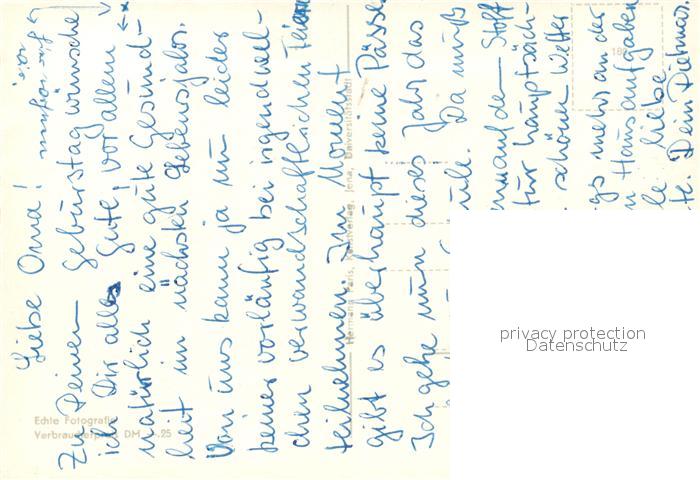 Liebe Oma!
Zu Deinem Geburtstag wünsche
ich Dir alles Gute, vor allem
natürlich eine gute Gesund-
heit im nächsten Lebensjahr.
Von uns kann ja nun leider
keiner vorläufig bei irgendwel-
chen verwandschaftlichen Feiern
teilnehmen. Im Moment
gibt es überhaupt keine Pässe
Ich gehe nun dieses Jahr das
Da muß
Stoff
für hauptsäch-
schönen Wetter
mehr an der
Hausaufgaben
liebe
Dein Dietmar.
Echte Fotografie
Verbraucherpreis DM 25
Hermann Paris, Kunstverlag, Jena, Universitätsstr.
privacy protection
Datenschutz